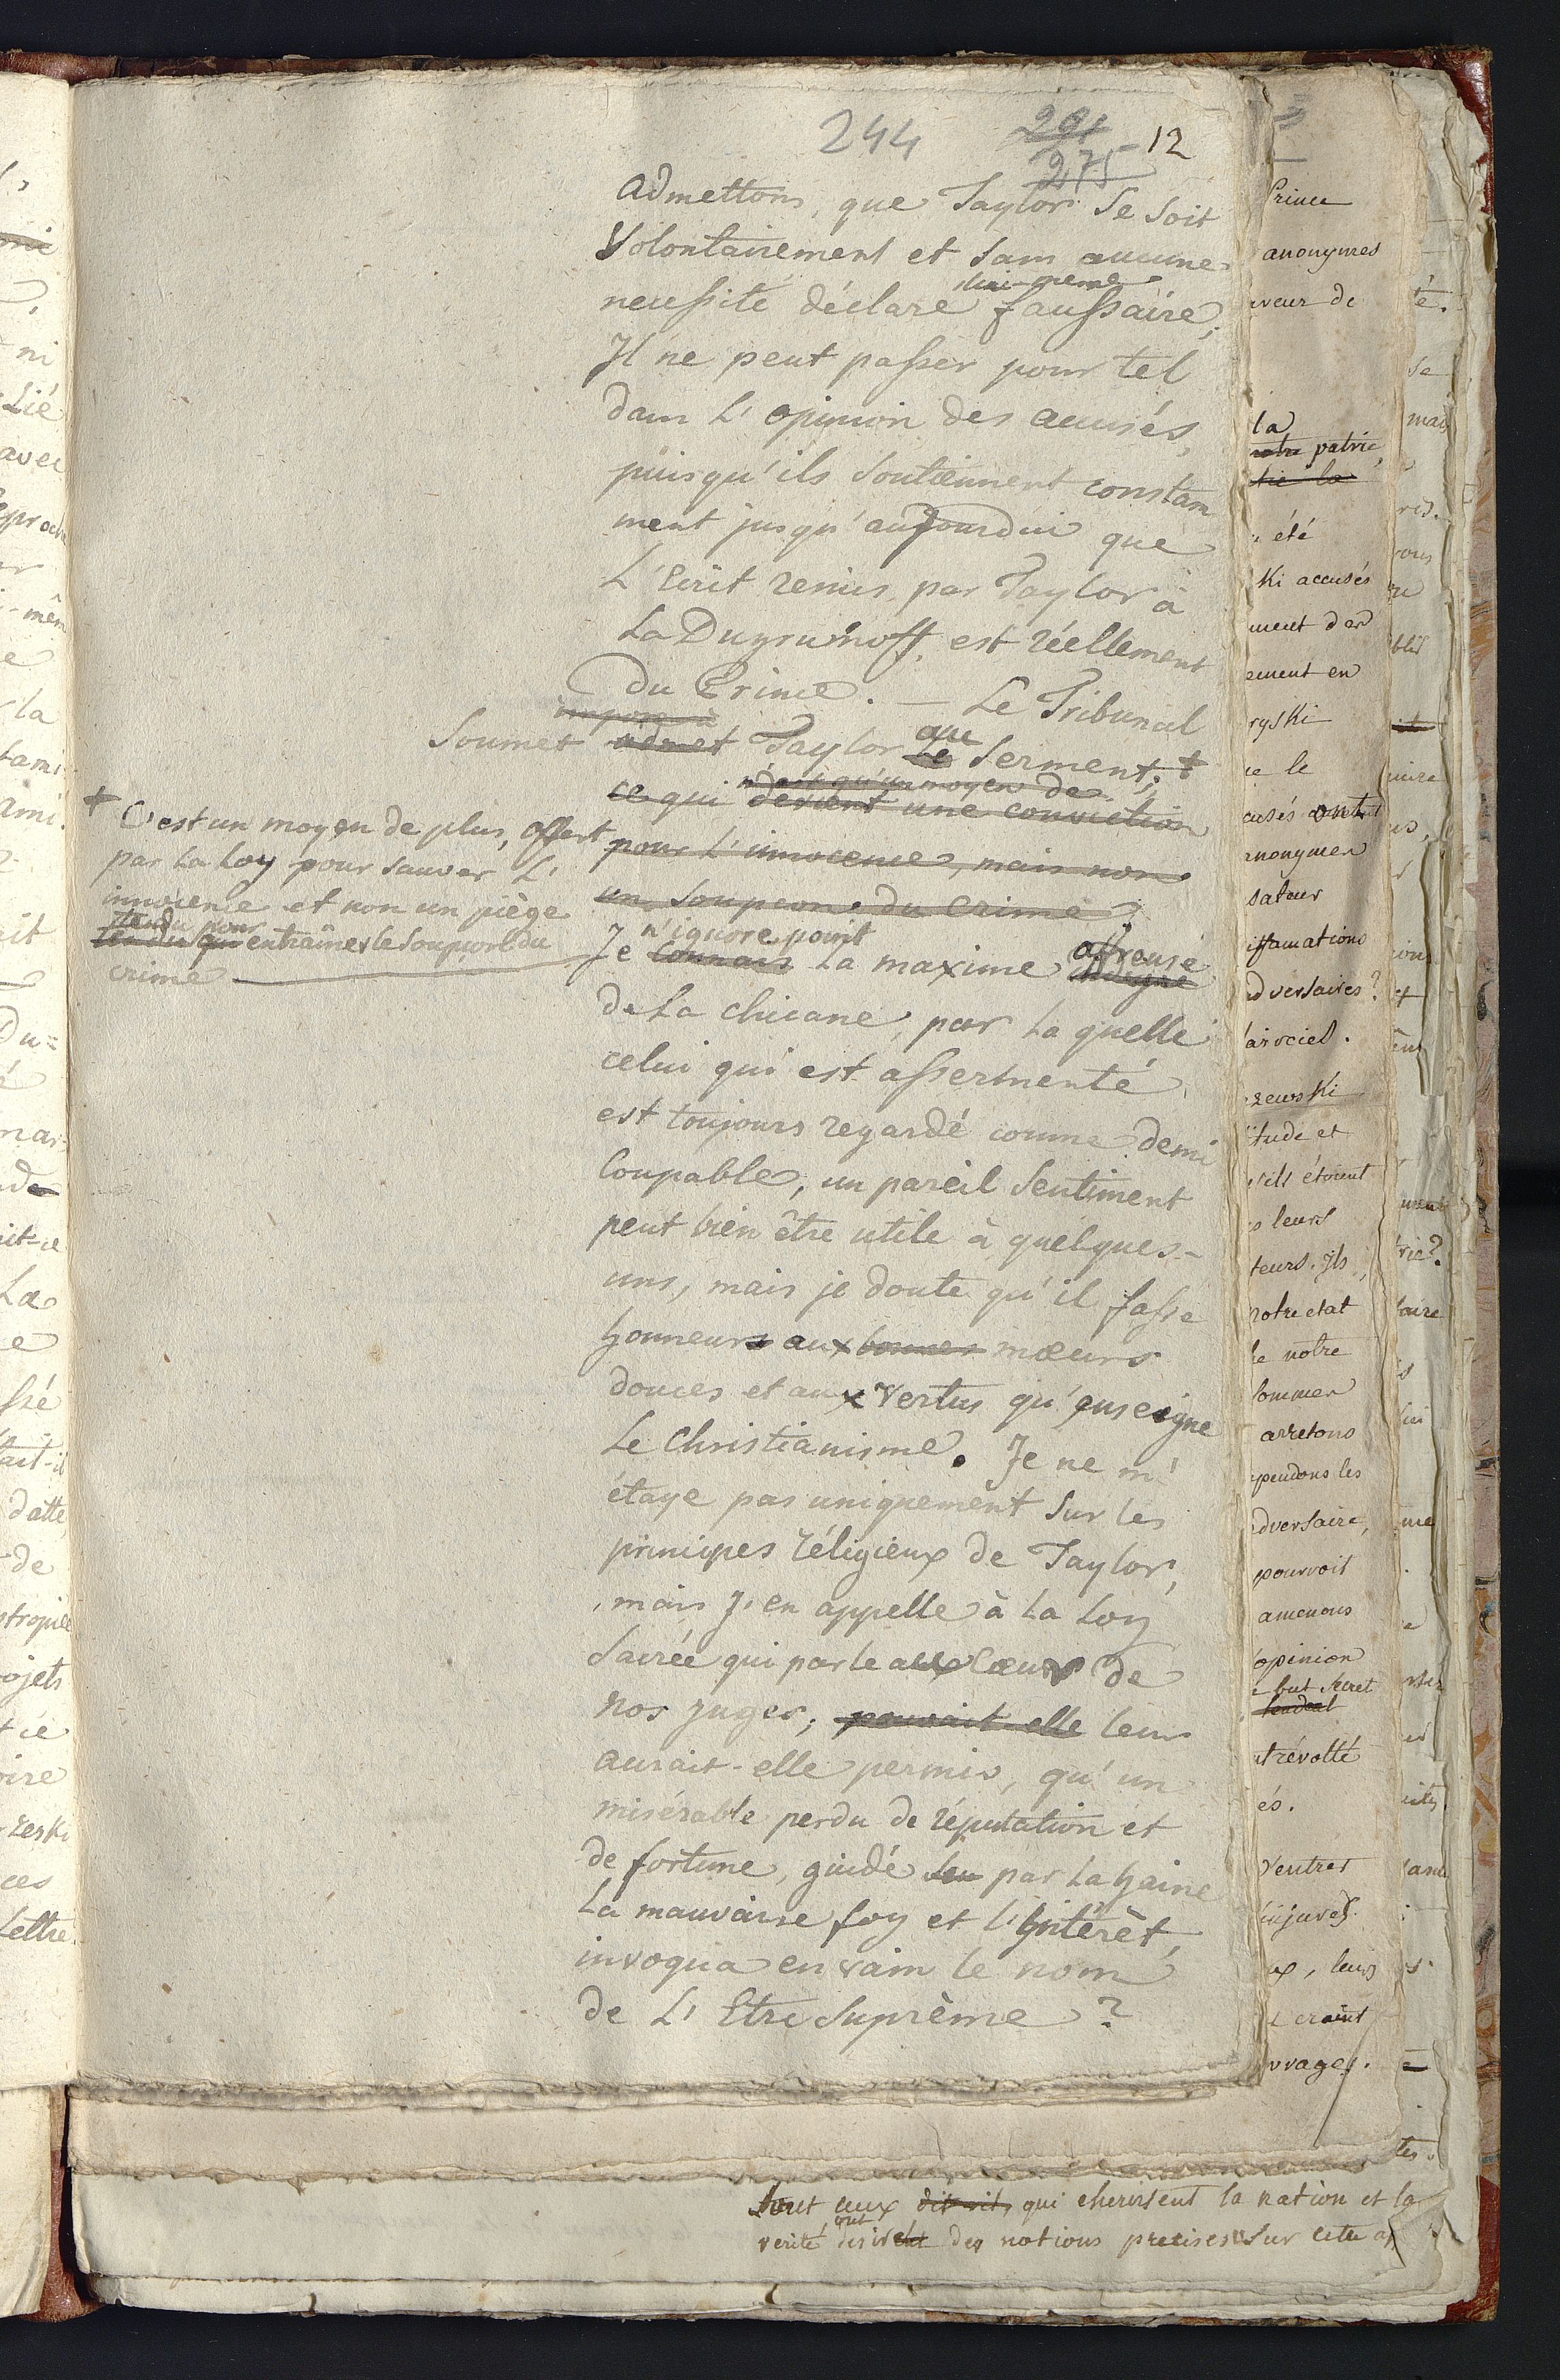 244 291 12
275
admettons, que Taylor se soit
Volontairement et sans aucune
necessité déclaré lui-meme faussaire,
Il ne peut passer pour tel
dans L'opinion des accusés,
puisqu'ils soutiennent constam
ment jusqu'aujourdui que
L'Ecrit remis par Taylor à
La Dugrumoff, est réellement
du Prince. — Le Tribunal
impose à
Soumet admet Taylor le au Serment; +
n'est qu'un moyen de
ce qui devient une conviction
pour L'innocence, mais non
un soupcon du crime
+ C'est un moyen de plus, offert
par La Loy pour sauver L'
innocence et non un piège
tendu pour
tendu qui entraîner le soupçon du
crime
Je connais n'ignore point La maxime affreuse
de La chicane, par La quelle
celui qui est assermenté,
est toujours regardé comme demi
Coupable, un pareil Sentiment
peut bien être utile à quelques-
uns, mais je doute qu'il fasse
honneurs aux bonnes mœurs
douces et aux vertus qu'enseigne
Le Christianisme. Je ne m'
étaye pas uniquement Sur les
principes réligieux de Taylor,
mais J'en appelle à La Loy
Sacrée qui parle aux cœurs de
nos juges; pouvait-elle leur
aurait-elle permis, qu'un
misérable perdu de réputation et
de fortune, guidé par La haine
La mauvaise foy et l'Intérêt,
invoqua en vain le nom
de L'Etre Suprème?
Prince
anonymes
aveur de
la
notre patrie,
été
ki accusés
ement en
ryski
ue le
cusés ont
anonymes
sateur
iffamations
adversaires?
associés.
zewski
tude et
s'ils étoient
s leurs
teurs. Ils
notre etat
de notre
sommes
arretons
spendons les
adversaire,
pourvoit
amenons
opinion
e but secret
révolté
és.
Ventres
injures.
ux, leurs
craint
uvrages.
tous ceux qui cherissent la nation et la
verité des notions precises sur cette a